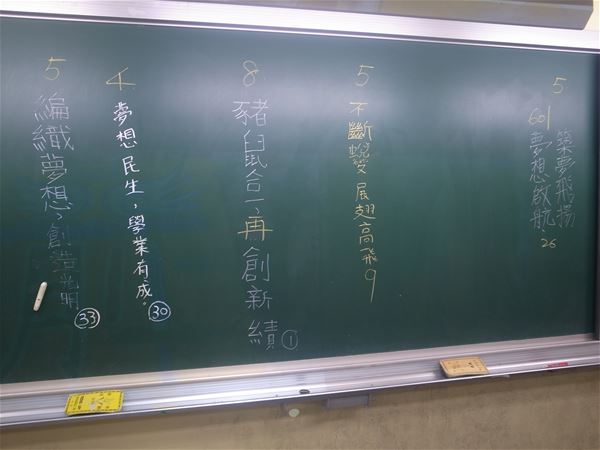 5
築夢飛揚
601
夢想啟航
26
5
不斷蛻變展翅高飛
9
8
豬鼠合一,再創新績
①
4
夢想民生，學業有成。
㉚
5
編織夢想，創造光明
㉝